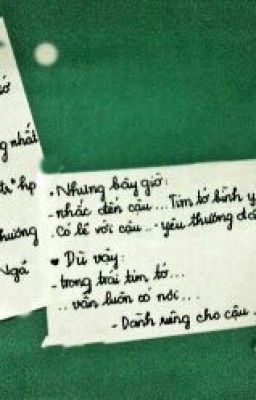 g nhất
hp
hương
Ngá
• Nhưng bây giờ:
- nhắc đến cậu... Tim tớ bình y
Có lẽ với cậu... - yêu thương đã
♥ Dù vậy:
- trong trái tim tớ...
... vẫn luôn có nơi...
- Dành riêng cho cậu